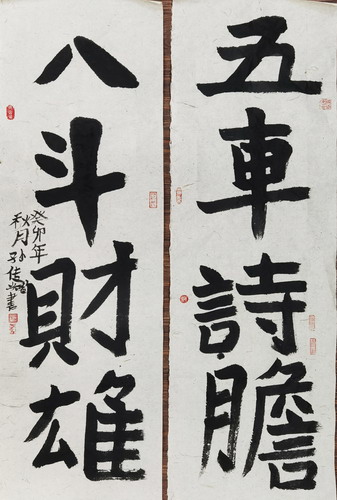 五車詩膽
八斗財雄
癸卯年
秋月孙佳
書